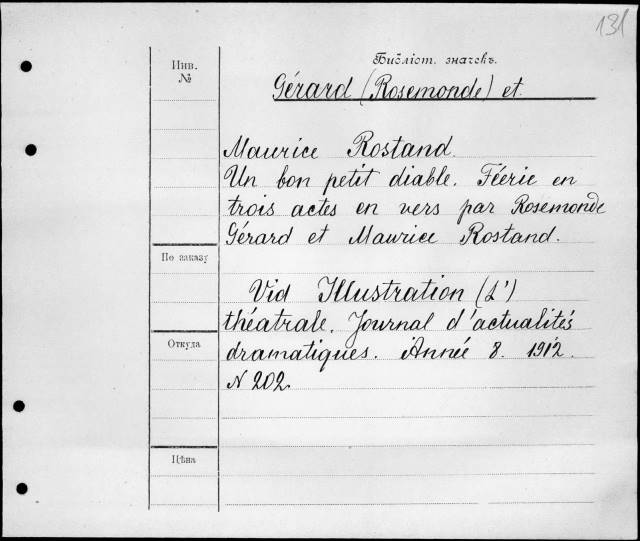 131
Инв.
№
Библіот. значекъ.
Gérard (Rosemonde) et
Maurice Rostand.
Un bon petit diable. Féerie en
trois actes en vers par Rosemonde
Gérard et Maurice Rostand.
По заказу
Vid Illustration (L')
théatrale. Journal d'actualités
Откуда
dramatiques. Année 8. 1912.
N 202.
Цѣна